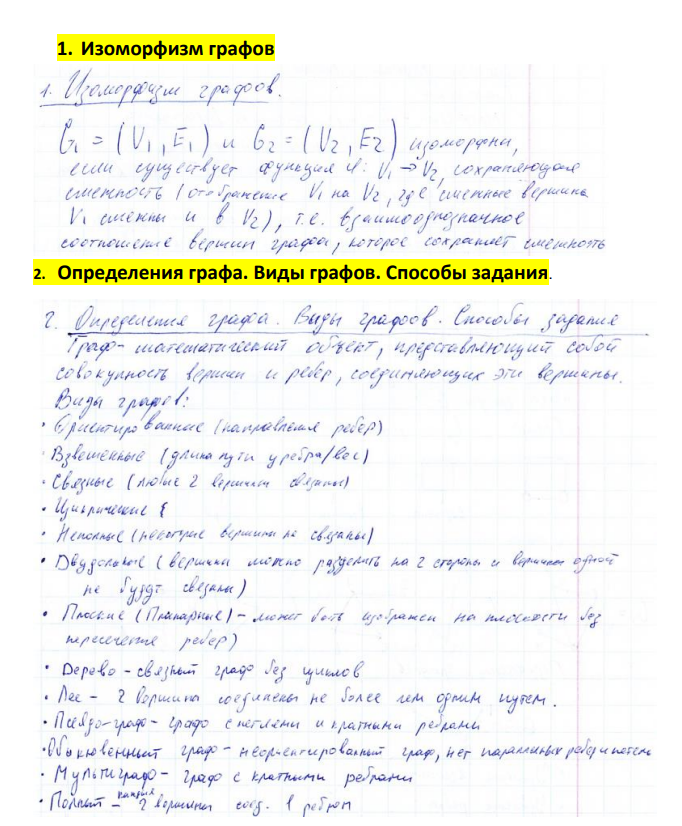 1. Изоморфизм графов
1. Изоморфизм графов.
G₁ = (V₁, E₁) и G₂ = (V₂, E₂) изоморфны,
если существует функция φ: V₁ → V₂, сохраняющая
смежность (отображение V₁ на V₂, где смежные вершины
V₁ смежны и в V₂), т.е. взаимооднозначное
соотношение вершин графа, которое сохраняет смежность
2. Определения графа. Виды графов. Способы задания.
2. Определения графа. Виды графов. Способы задания
Граф - математический объект, представляющий собой
совокупность вершин и ребер, соединяющих эти вершины.
Виды графов:
• Ориентированные (направления ребер)
• Взвешенные (длина пути у ребра/вес)
• Связные (любые 2 вершины связаны)
• Циклические {
• Неполные (некоторые вершины не связаны)
• Двудольные (вершины можно разделить на 2 стороны и вершины одной
не будут связаны)
• Плоские (Планарные) - может быть изображен на плоскости без
пересечения ребер)
• Дерево - связный граф без циклов
• Лес - 2 вершины соединены не более чем одним путем.
• Псевдо-граф - граф с петлями и кратными ребрами
• Обыкновенный граф - неориентированный граф, нет параллельных ребер и петель
• Мультиграф - граф с кратными ребрами
• Полный - каждая 2 вершины соед. 1 ребром